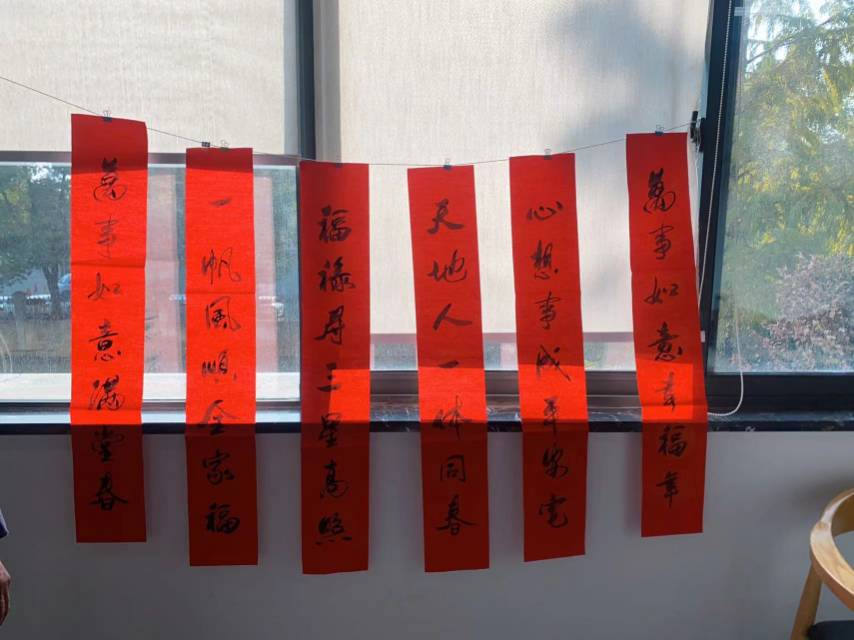 萬事如意幸福年
心想事成平安宅
天地人一体同春
福禄寿三星高照
一帆風順全家福
萬事如意滿堂春